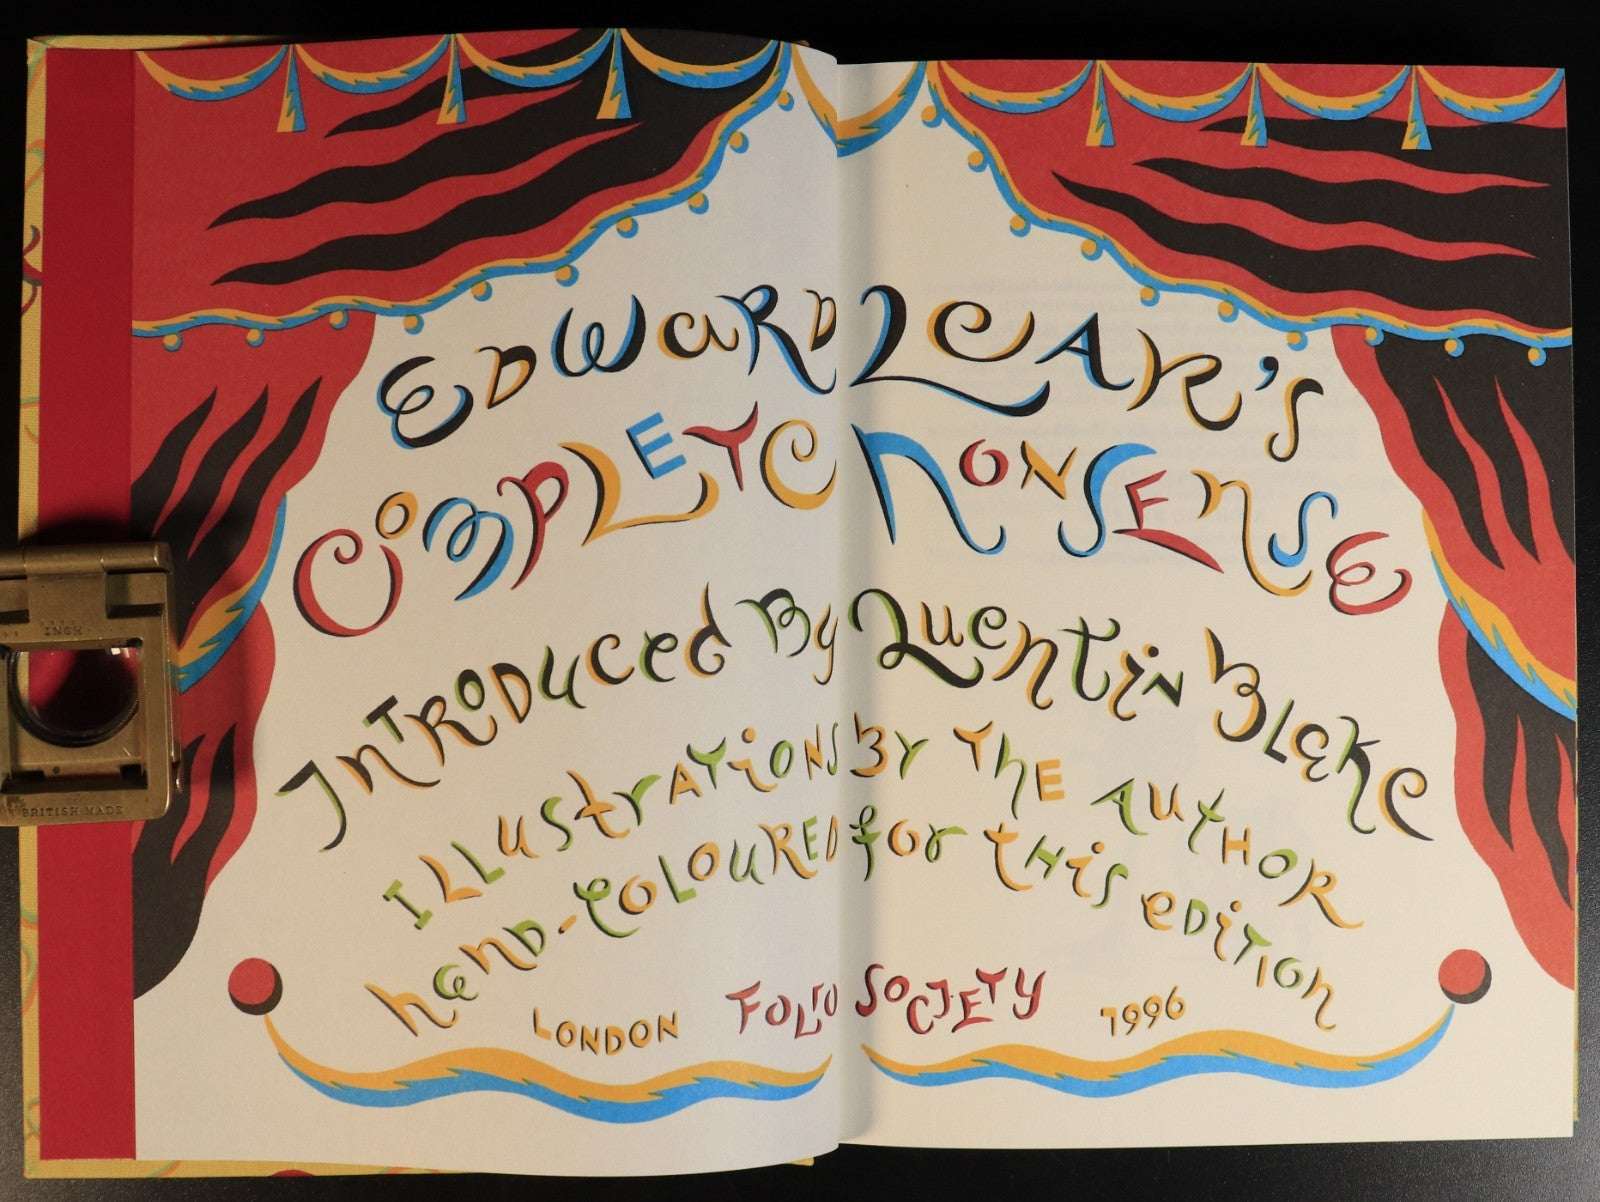 Edward Lear's
Complete Nonsense
Introduced By Quentin Blake
Illustrations By The Author
Hand-Coloured for this edition
London Folio Society 1996
INCH
BRITISH MADE